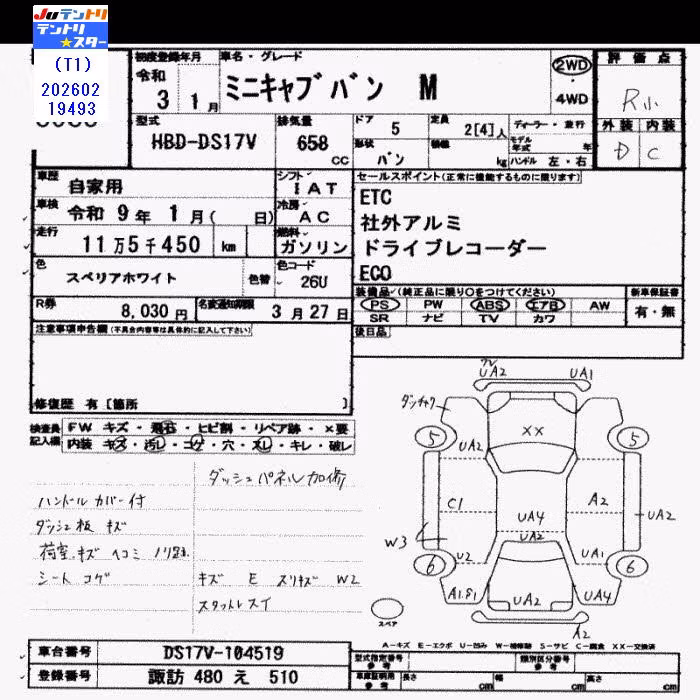 Juテントリ
テントリ
★スター
(T1)
202602
19493
初度登録年月
令和
3 1月
車名・グレード
ミニキャブバン M
2WD
・
4WD
評価点
R小
外装 内装
D C
型式
HBD-DS17V
排気量
658
cc
ドア
5
定員
2[4]人
ディーラー・並行
形状
バン
積載
kg
モデル年式
年
ハンドル 左・右
車歴
自家用
シフト
IAT
車検
令和 9年 1月( 日)
冷房
AC
走行
11万5千450 km
燃料
ガソリン
色
スペリアホワイト
色替
色コード
26U
R券
8,030円
名変通知期限
3月27日
セールスポイント(正常に機能するものに限ります)
ETC
社外アルミ
ドライブレコーダー
ECO
装備品✓(純正品に限り○をつけてください)
新車保証書
PS PW ABS エアB AW
SR ナビ TV カワ
有・無
後日品
注意事項申告欄(不具合内容等は具体的に記入して下さい)
修復歴 有[箇所 ]
検査員
記入欄
FW キズ・飛石・ヒビ割・リペア跡・×要
内装 キズ・汚レ・コゲ・穴・スレ・キレ・破レ
ダッシュパネル加修
ハンドルカバー付
ダッシュ板 キズ
荷室.キズ ヘコミ ノリ跡
シート コゲ
キズ E スリキズ W2
スタットレスイ
UA2
UA1
ダッチャク
5
5
XX
UA2
C1
A2
UA4
UA2
UA2
W3
U2
UA1
6
6
A1.S1
UA2
UA4
A2
スペア
A-キズ E-エクボ U-凹み W-補修跡 S-サビ C-腐食 XX-交換済
車台番号
DS17V-104519
登録番号
諏訪 480 え 510
型式指定番号
参考
類別区分番号
参考
車庫証明用
参考
長さ
cm
幅
cm
高さ
cm